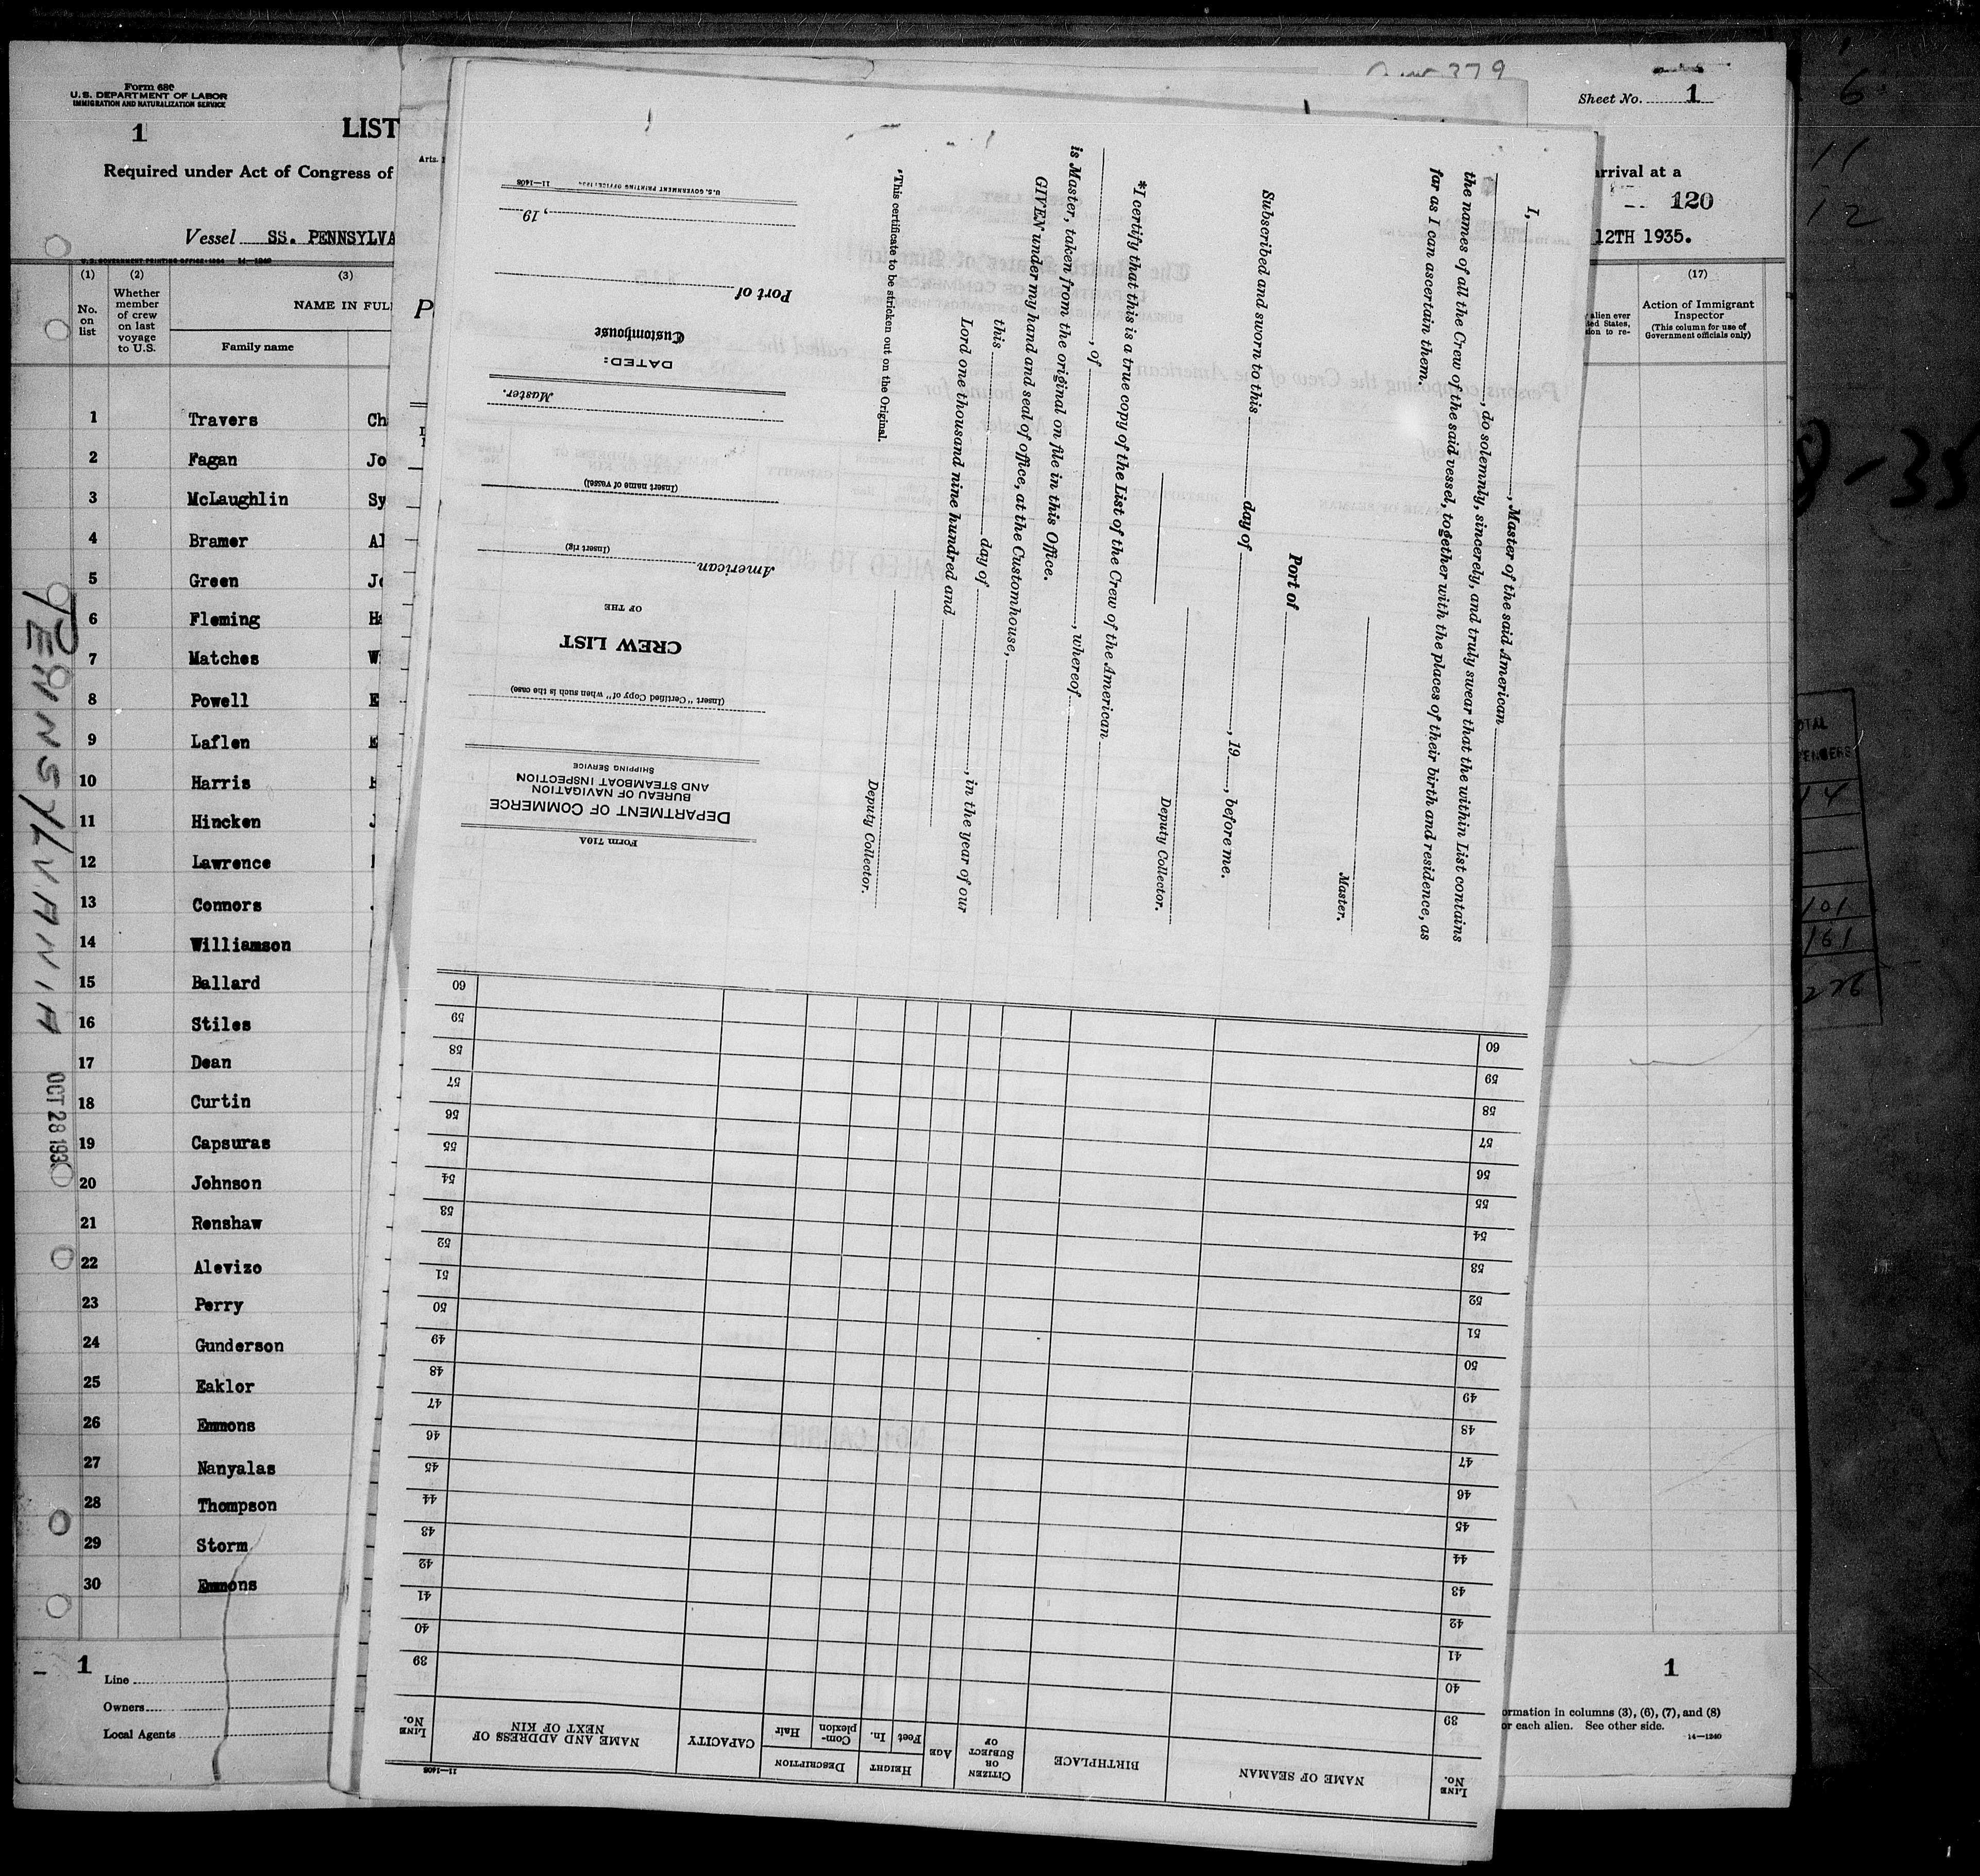 Form 680
U. S. DEPARTMENT OF LABOR
IMMIGRATION AND NATURALIZATION SERVICE
1
LIST
Required under Act of Congress of
Vessel SS. PENNSYLVA
U. S. GOVERNMENT PRINTING OFFICE: 1934 14-1240
(1) (2) (3)
No. on list
Whether member of crew on last voyage to U.S.
NAME IN FUL
Family name
1 Travers Ch
2 Fagan Jo
3 McLaughlin Sy
4 Bramer Al
5 Green Jo
6 Fleming Ha
7 Matches W
8 Powell E
9 Laflen E
10 Harris
11 Hincken J
12 Lawrence
13 Connors
14 Williamson
15 Ballard
16 Stiles
17 Dean
18 Curtin
19 Capsuras
20 Johnson
21 Renshaw
22 Alevizo
23 Perry
24 Gunderson
25 Eaklor
26 Emmons
27 Nanyalas
28 Thompson
29 Storm
30 Emmons
PENNSYLVANIA
OCT 28 193
1
Line
Owners
Local Agents
Arts.
P
379
Sheet No. 1
arrival at a
120
12TH 1935.
(17)
alien ever
ted States,
ion to re-
Action of Immigrant Inspector
(This column for use of Government officials only)
8-35
6
11
12
OTAL
ENGERS
14
101
161
226
1
ormation in columns (3), (6), (7), and (8)
or each alien. See other side.
14-1240
I, , Master of the said American
, do solemnly, sincerely, and truly swear that the within List contains
the names of all the Crew of the said vessel, together with the places of their birth and residence, as
far as I can ascertain them.
Master.
Port of
Subscribed and sworn to this day of , 19 , before me.
Deputy Collector.
*I certify that this is a true copy of the List of the Crew of the American
, of , whereof
is Master, taken from the original on file in this Office.
GIVEN under my hand and seal of office, at the Customhouse,
this day of , in the year of our
Lord one thousand nine hundred and
Deputy Collector.
*This certificate to be stricken out on the Original.
Form 710A
DEPARTMENT OF COMMERCE
BUREAU OF NAVIGATION
AND STEAMBOAT INSPECTION
SHIPPING SERVICE
(Insert "Certified Copy of" when such is the case)
CREW LIST
OF THE
American
(Insert rig)
(Insert name of vessel)
Master.
DATED:
Customhouse
Port of
, 19
U.S. GOVERNMENT PRINTING OFFICE: 1934 11-1408
11-1408
LINE No.
NAME OF SEAMAN
BIRTHPLACE
CITIZEN OR SUBJECT OF
AGE
HEIGHT
Feet In.
DESCRIPTION
Complexion Hair
CAPACITY
NAME AND ADDRESS OF NEXT OF KIN
LINE No.
39 39
40 40
41 41
42 42
43 43
44 44
45 45
46 46
47 47
48 48
49 49
50 50
51 51
52 52
53 53
54 54
55 55
56 56
57 57
58 58
59 59
60 60